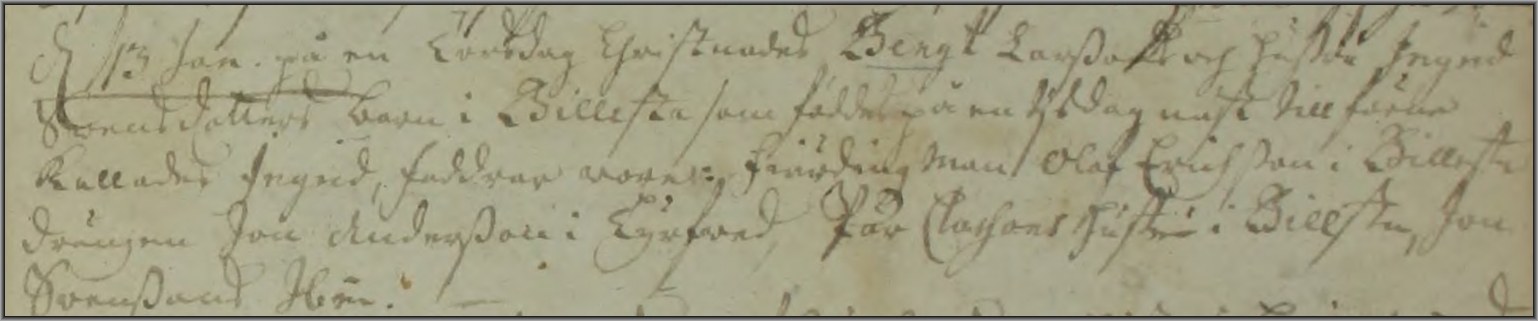 d 13 Jan. på en Lördag Christnades Bengt Larßons och hustru Ingrid
Swensdotters barn i Billesta som föddes på en tysdag näst till förne
kallades Ingrid, faddrar wore: Fiärdingman Olof Erichßon i Billesta
drängen Jon Anderßon i Pär Claßons hustru i Billesta, Jon
Swenßons